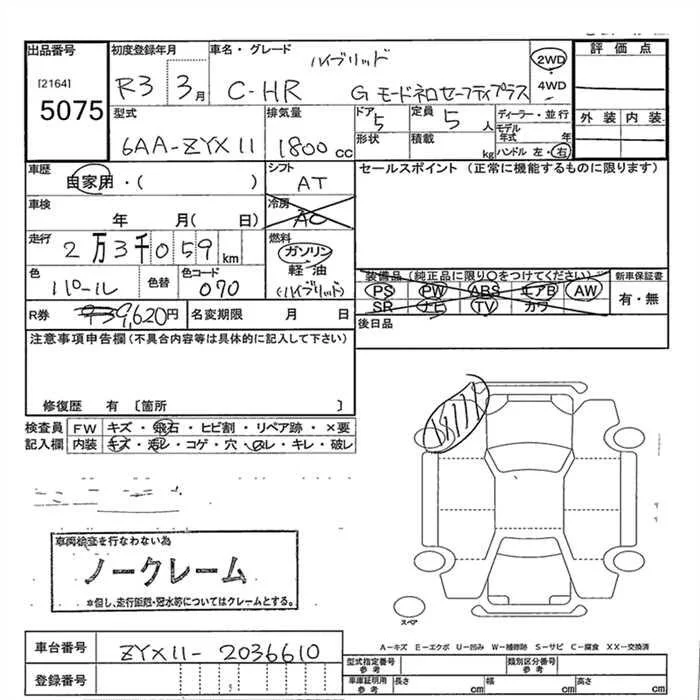 出品番号 初度登録年月 車名・グレード ハイブリッド 2WD 評価点
[2164] R3 3月 C-HR G モードネロセーフティプラス 4WD
5075
型式 排気量 ドア 定員 ディーラー・並行 外装 内装
6AA-ZYX11 1800cc 5 5人 モデル年式 年
形状 積載 kg ハンドル 左・右
車歴 シフト セールスポイント(正常に機能するものに限ります)
自家用・( ) AT
車検 冷房
年 月( 日) AC
走行 燃料
2万3千059km ガソリン
軽油
(ハイブリッド)
色 色替 色コード
パール 070
装備品(純正品に限り○をつけてください) 新車保証書
PS PW ABS エアB AW 有・無
SR ナビ TV カワ
R券 9,620円 名変期限 月 日 後日品
注意事項申告欄(不具合内容等は具体的に記入して下さい)
修復歴 有 〔箇所 〕
検査員 FW キズ・飛石・ヒビ割・リペア跡・×要
記入欄 内装 キズ・汚レ・コゲ・穴・スレ・キレ・破レ
車両検査を行なわない為
ノークレーム
※但し、走行距離・冠水等についてはクレームとする。
スペア
A-キズ E-エクボ U-凹み W-補修跡 S-サビ C-腐食 XX-交換済
車台番号 ZYX11-2036610
登録番号
型式指定番号 参考 類別区分番号 参考
車庫証明用 参考 長さ cm 幅 cm 高さ cm